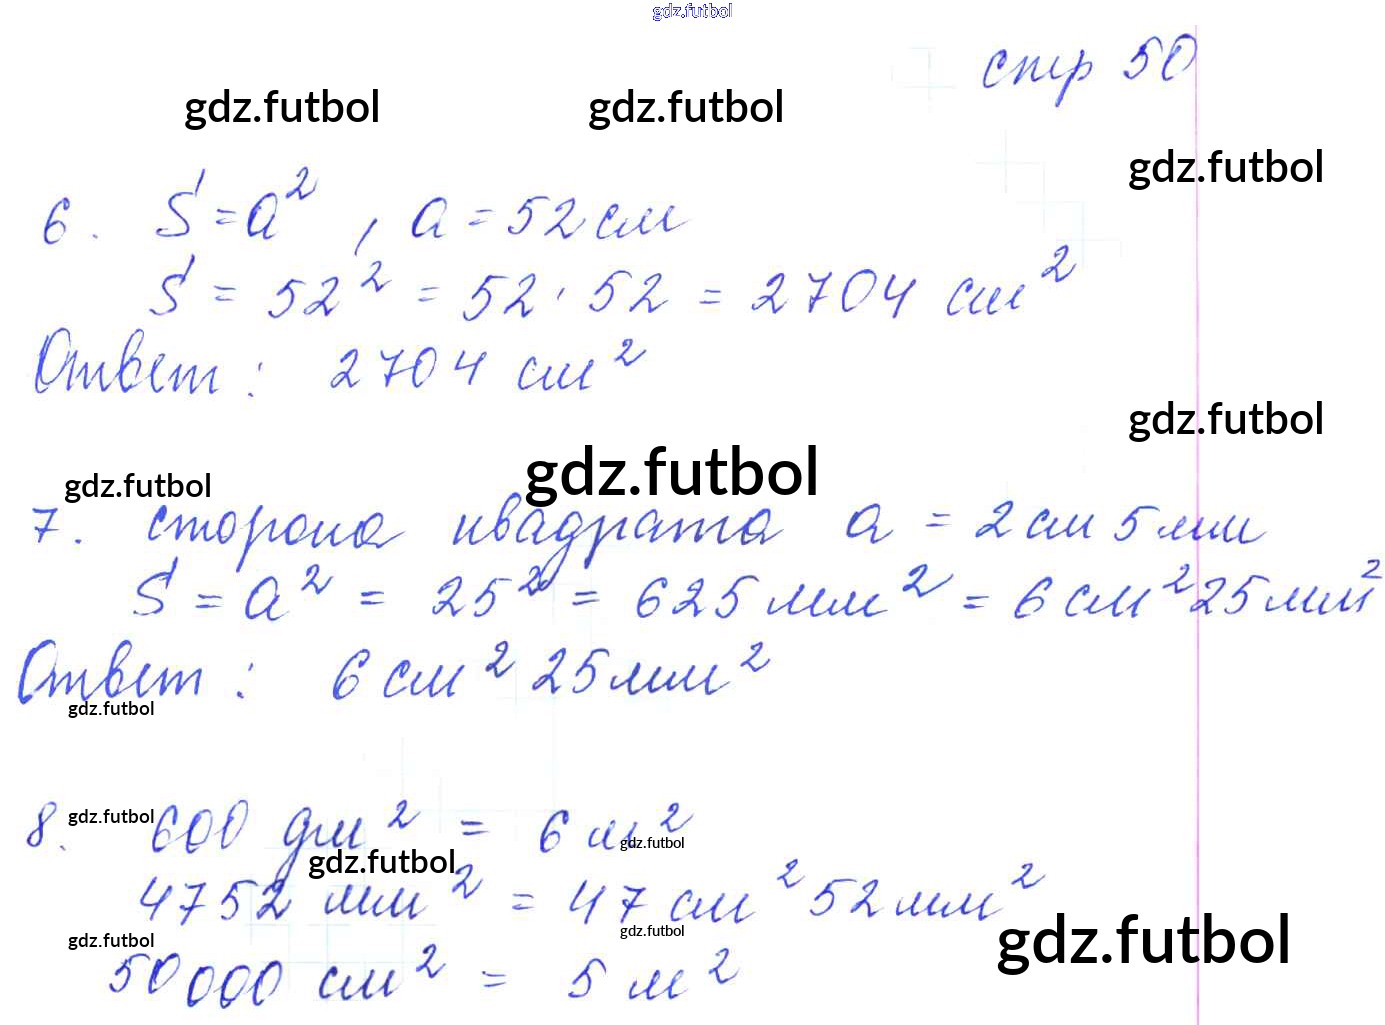 gdz.futbol
стр 50
gdz.futbol gdz.futbol
gdz.futbol
6. S = a², a = 52 см
S = 52² = 52 · 52 = 2704 см²
Ответ: 2704 см²
gdz.futbol
gdz.futbol gdz.futbol
7. сторона квадрата a = 2 см 5 мм
S = a² = 25² = 625 мм² = 6 см² 25 мм²
Ответ: 6 см² 25 мм²
gdz.futbol
8. gdz.futbol 600 дм² = 6 м²
gdz.futbol gdz.futbol
4752 мм² = 47 см² 52 мм²
gdz.futbol gdz.futbol gdz.futbol
50000 см² = 5 м²